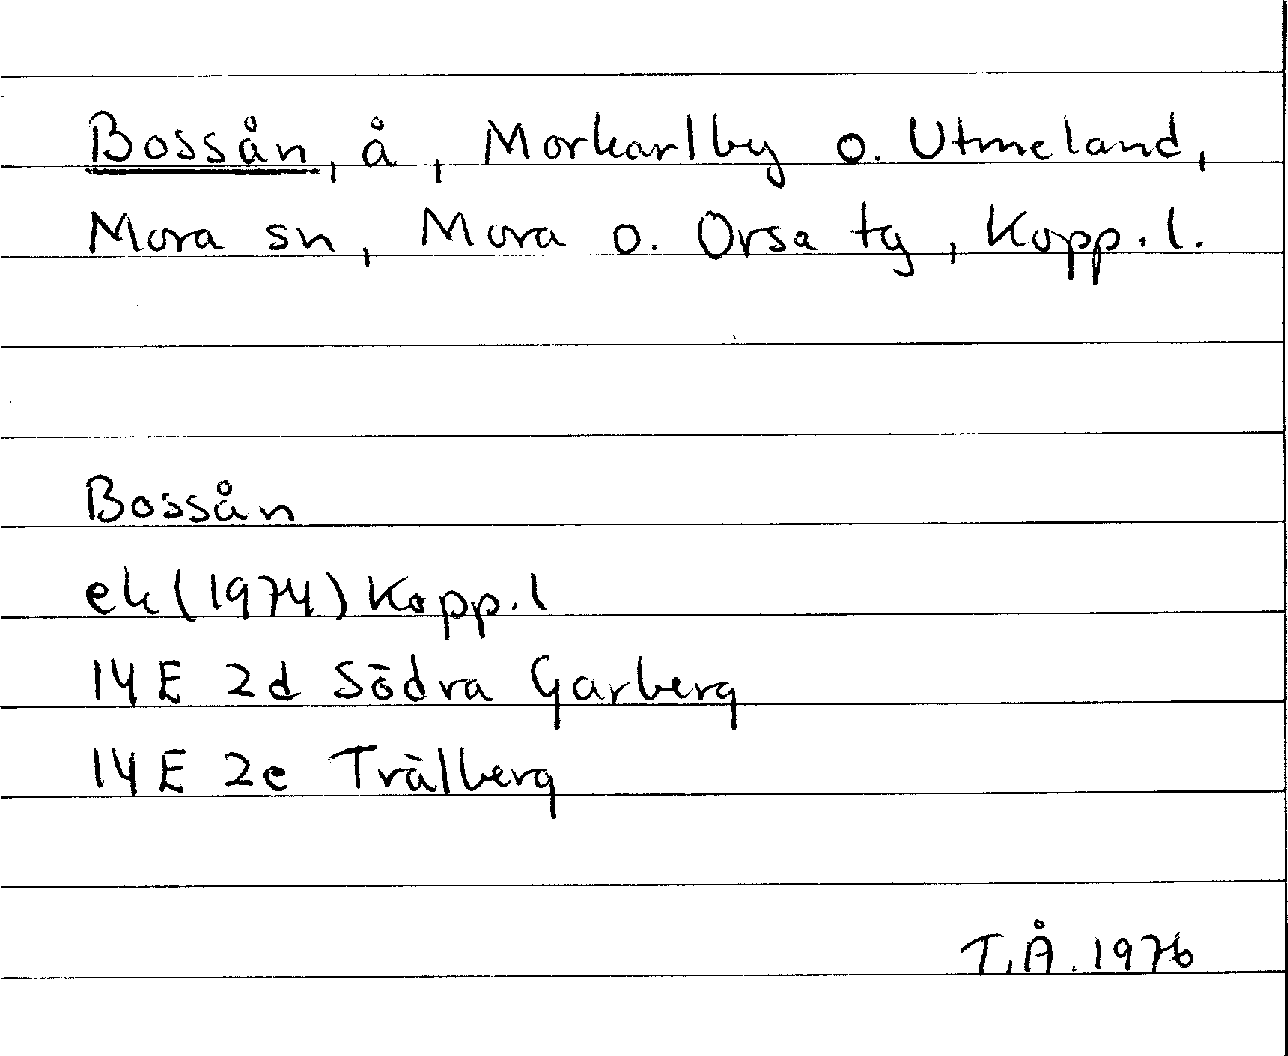 Bossån, å, Morkarlby o. Utmeland,
Mora sn, Mora o. Orsa tg, Kopp. l.
Bossån
ek (1974) Kopp. l
14 E 2d Södra Garberg
14 E 2e Trälberg
T.Å. 1976